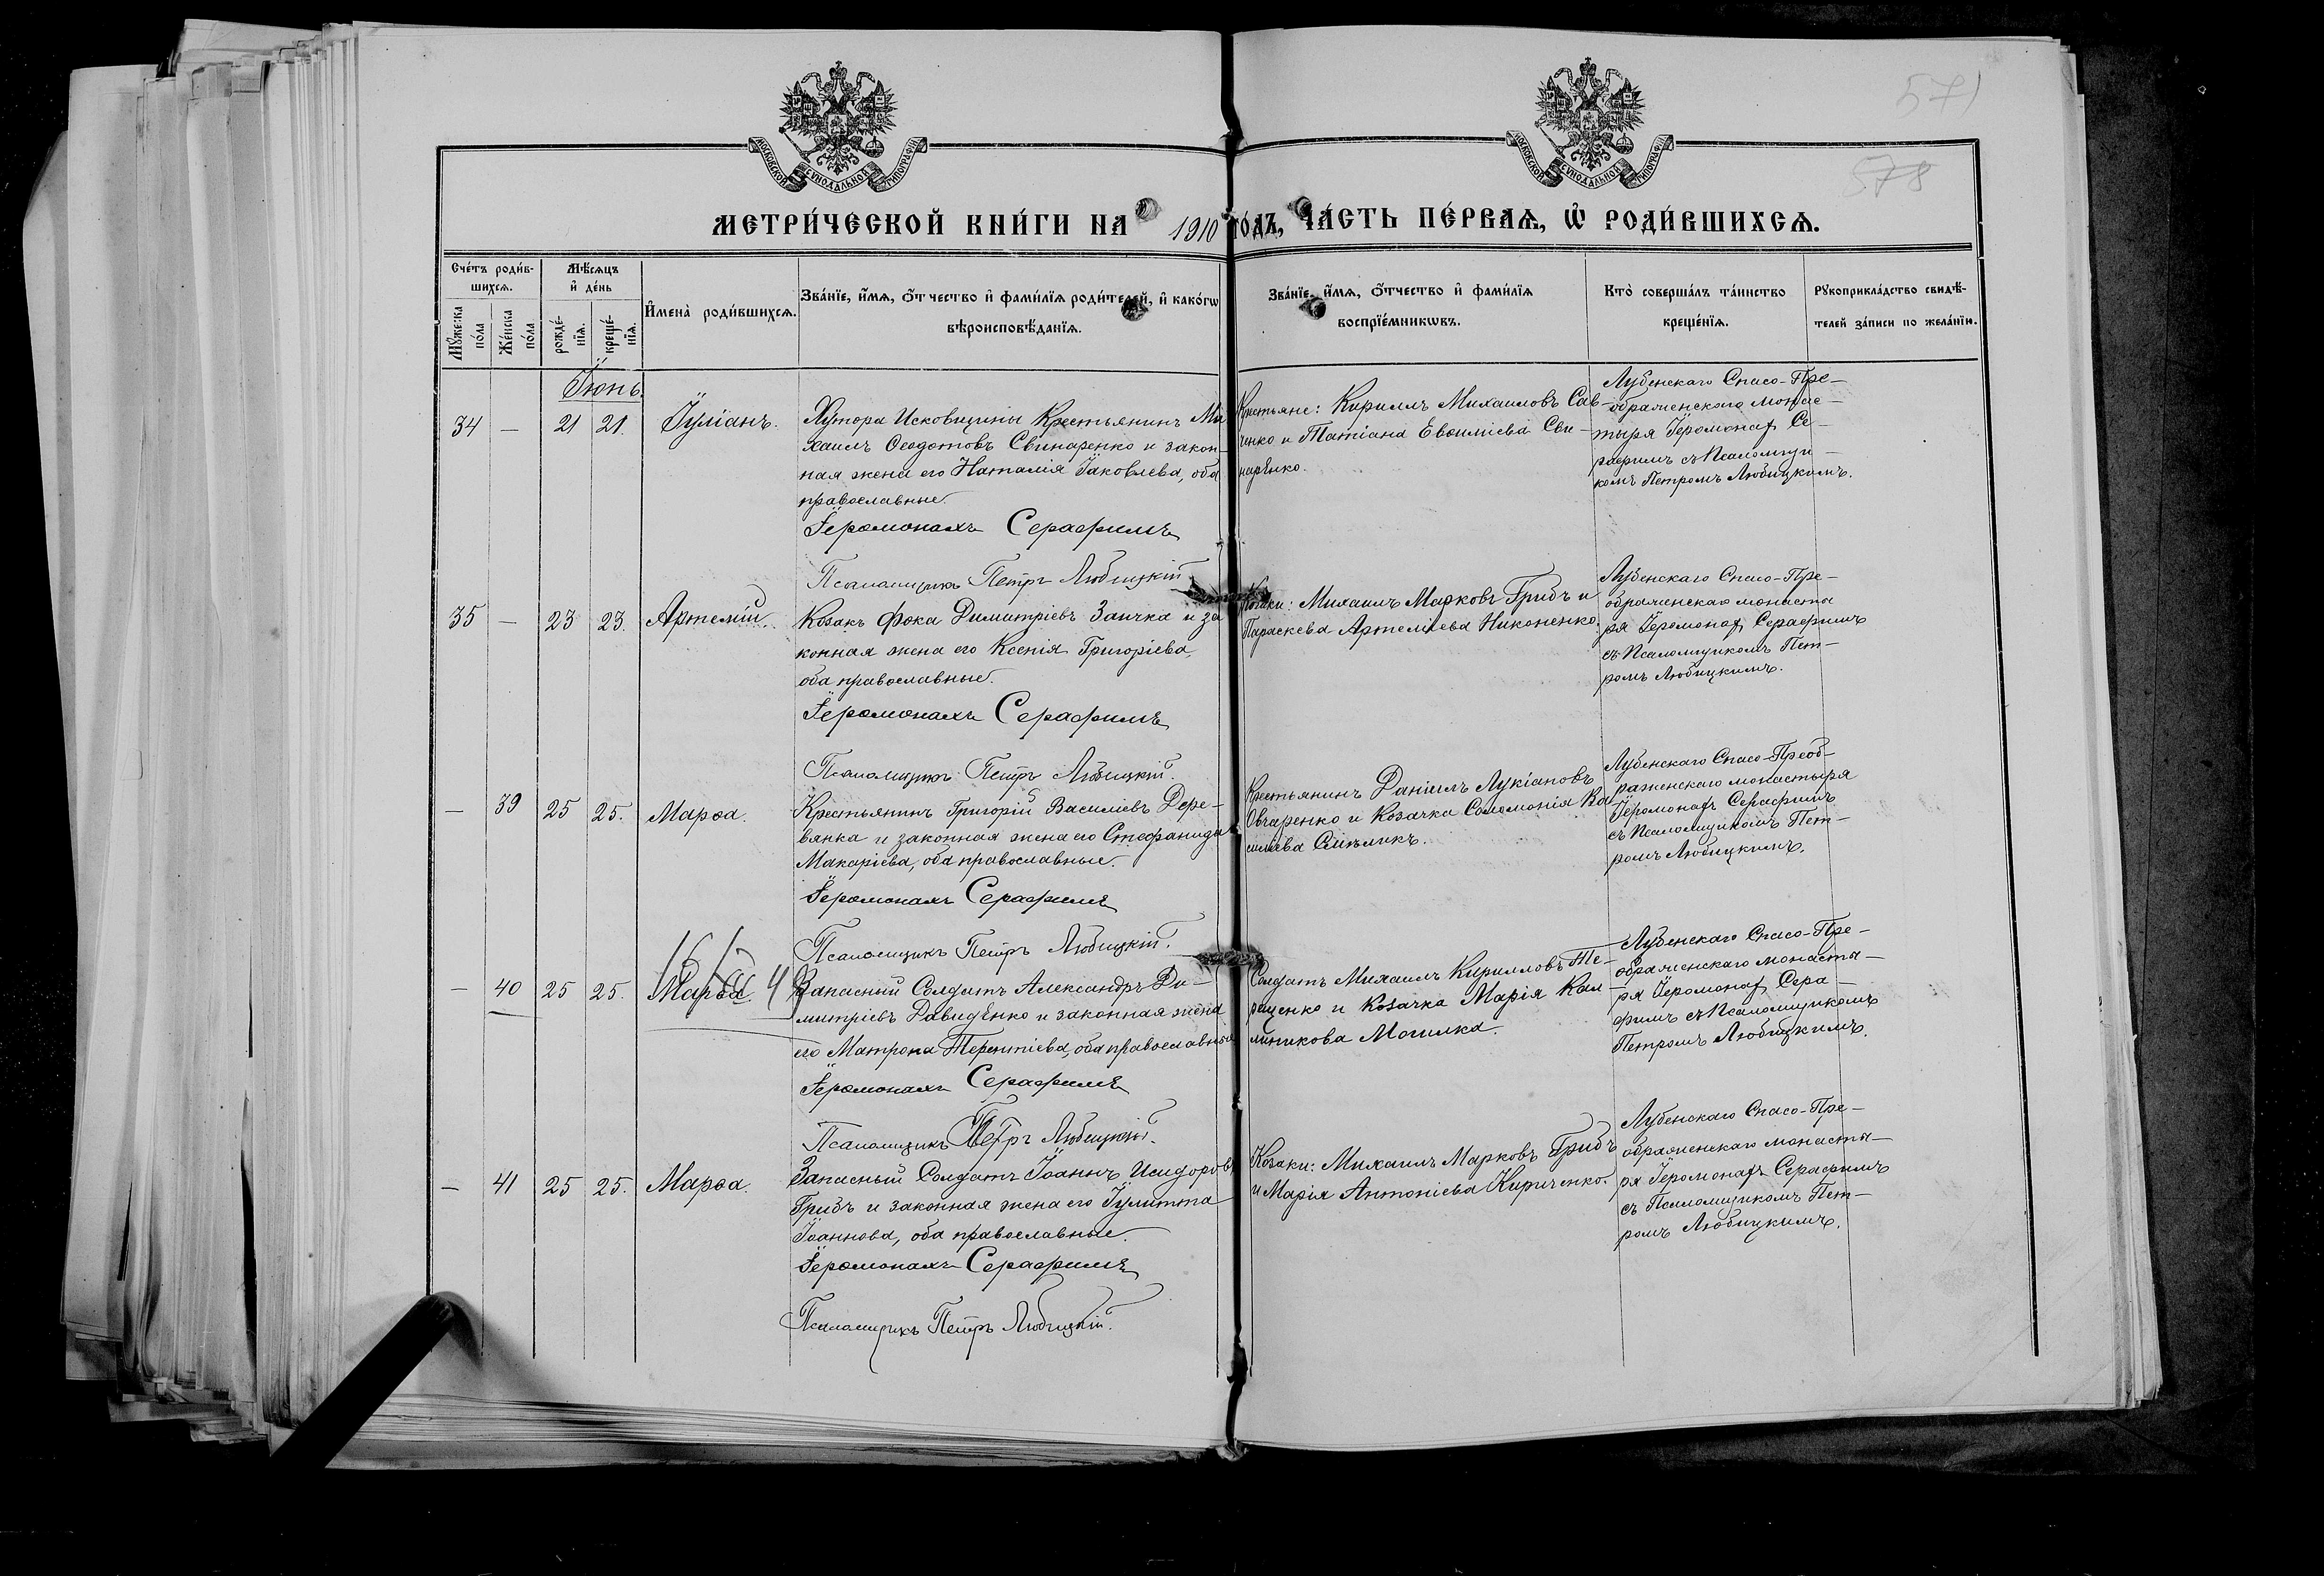 571
578
МОСКОВСКОЙ СѴНОДАЛЬНОЙ ТИПОГРАФІИ
МОСКОВСКОЙ СѴНОДАЛЬНОЙ ТИПОГРАФІИ
МЕТРИ́ЧЕСКОЙ КНИ́ГИ НА 1910 ГО́ДЪ, ЧА́СТЬ ПЕ́РВАѦ, Ѽ РОДИ́ВШИХСѦ.
Сче́тъ роди́в-
шихсѧ.
Мꙋ́жеска по́ла
Же́нска по́ла
Мѣ́сѧцъ
и҆ де́нь
рожде́-
нїѧ.
креще́-
нїѧ.
И҆мена̀ роди́вшихсѧ.
Зва́нїе, и҆́мѧ, ѻ҆́тчество и҆ фами́лїѧ роди́телей, и҆ како́гѡ
вѣроисповѣ́данїѧ.
Зва́нїе, и҆́мѧ, ѻ҆́тчество и҆ фами́лїѧ
воспрїе́мникѡвъ.
Кто̀ соверша́лъ та́инство
креще́нїѧ.
Рꙋкоприкла́дство свидѣ́-
телей за́писи по жела́нїю.
Іюнь.
34 — 21 21. Іуліанъ.
Хутора Исковщины Крестьянинъ Ми
хаилъ Ѳеодотовъ Свинаренко и закон-
ная жена его Наталія Іаковлева, оба
православные.
Іеромонахъ Серафимъ
Псаломщикъ Петръ Любицкій
Крестьяне: Кириллъ Михаиловъ Сав-
ченко и Татіана Евѳиміева Сви-
наренко.
Лубенскаго Спасо-Пре-
ображенскаго монас-
тыря Іеромонах Се-
рафимъ съ Псаломщи-
комъ Петромъ Любицкимъ.
35 — 23 23. Артемій.
Козакъ Фока Димитріевъ Заичка и за
конная жена его Ксенія Григоріева,
оба православные.
Іеромонахъ Серафимъ
Псаломщикъ Петръ Любицкій.
Козаки: Михаилъ Марковъ Грибъ и
Параскева Артеміева Никоненко.
Лубенскаго Спасо-Пре-
ображенскаго монасты
ря Іеромонах Серафимъ
съ Псаломщикомъ Пет-
ромъ Любицкимъ.
— 39 25 25. Марѳа.
Крестьянинъ Григорій Василіевъ Дере-
вянка и законная жена его Стефанида
Макаріева, оба православные.
Іеромонахъ Серафимъ
Псаломщикъ Петръ Любицкій.
Крестьянинъ Даніилъ Лукіановъ
Овчаренко и Козачка Соломонія Ва
силіева
Лубенскаго Спасо-Преоб-
раженскаго монастыря
Іеромонахъ Серафимъ
съ Псаломщикомъ Пет-
ромъ Любицкимъ.
— 40 25 25. Марѳа.
Запасный Солдатъ Александръ Ди-
митріевъ Давиденко и законная жена
его Матрона Терентіева, оба православные
Іеромонахъ Серафимъ
Псаломщикъ Петръ Любицкій.
Солдатъ Михаилъ Кирилловъ Те-
рещенко и Козачка Марія Кал-
линикова Могилка.
Лубенскаго Спасо-Пре-
ображенскаго монасты-
ря Іеромонах Сера-
фимъ съ Псаломщикомъ
Петромъ Любицкимъ.
— 41 25 25. Марѳа.
Запасный Солдатъ Іоаннъ Исидоровъ
Грибъ и законная жена его Іулитта
Іоаннова, оба православные.
Іеромонахъ Серафимъ
Псаломщикъ Петръ Любицкій.
Козаки: Михаилъ Марковъ Грибъ
и Марія Антоніева Кириченко.
Лубенскаго Спасо-Пре-
ображенскаго монасты-
ря Іеромонахъ Серафимъ
съ Псаломщикомъ Пет-
ромъ Любицкимъ.